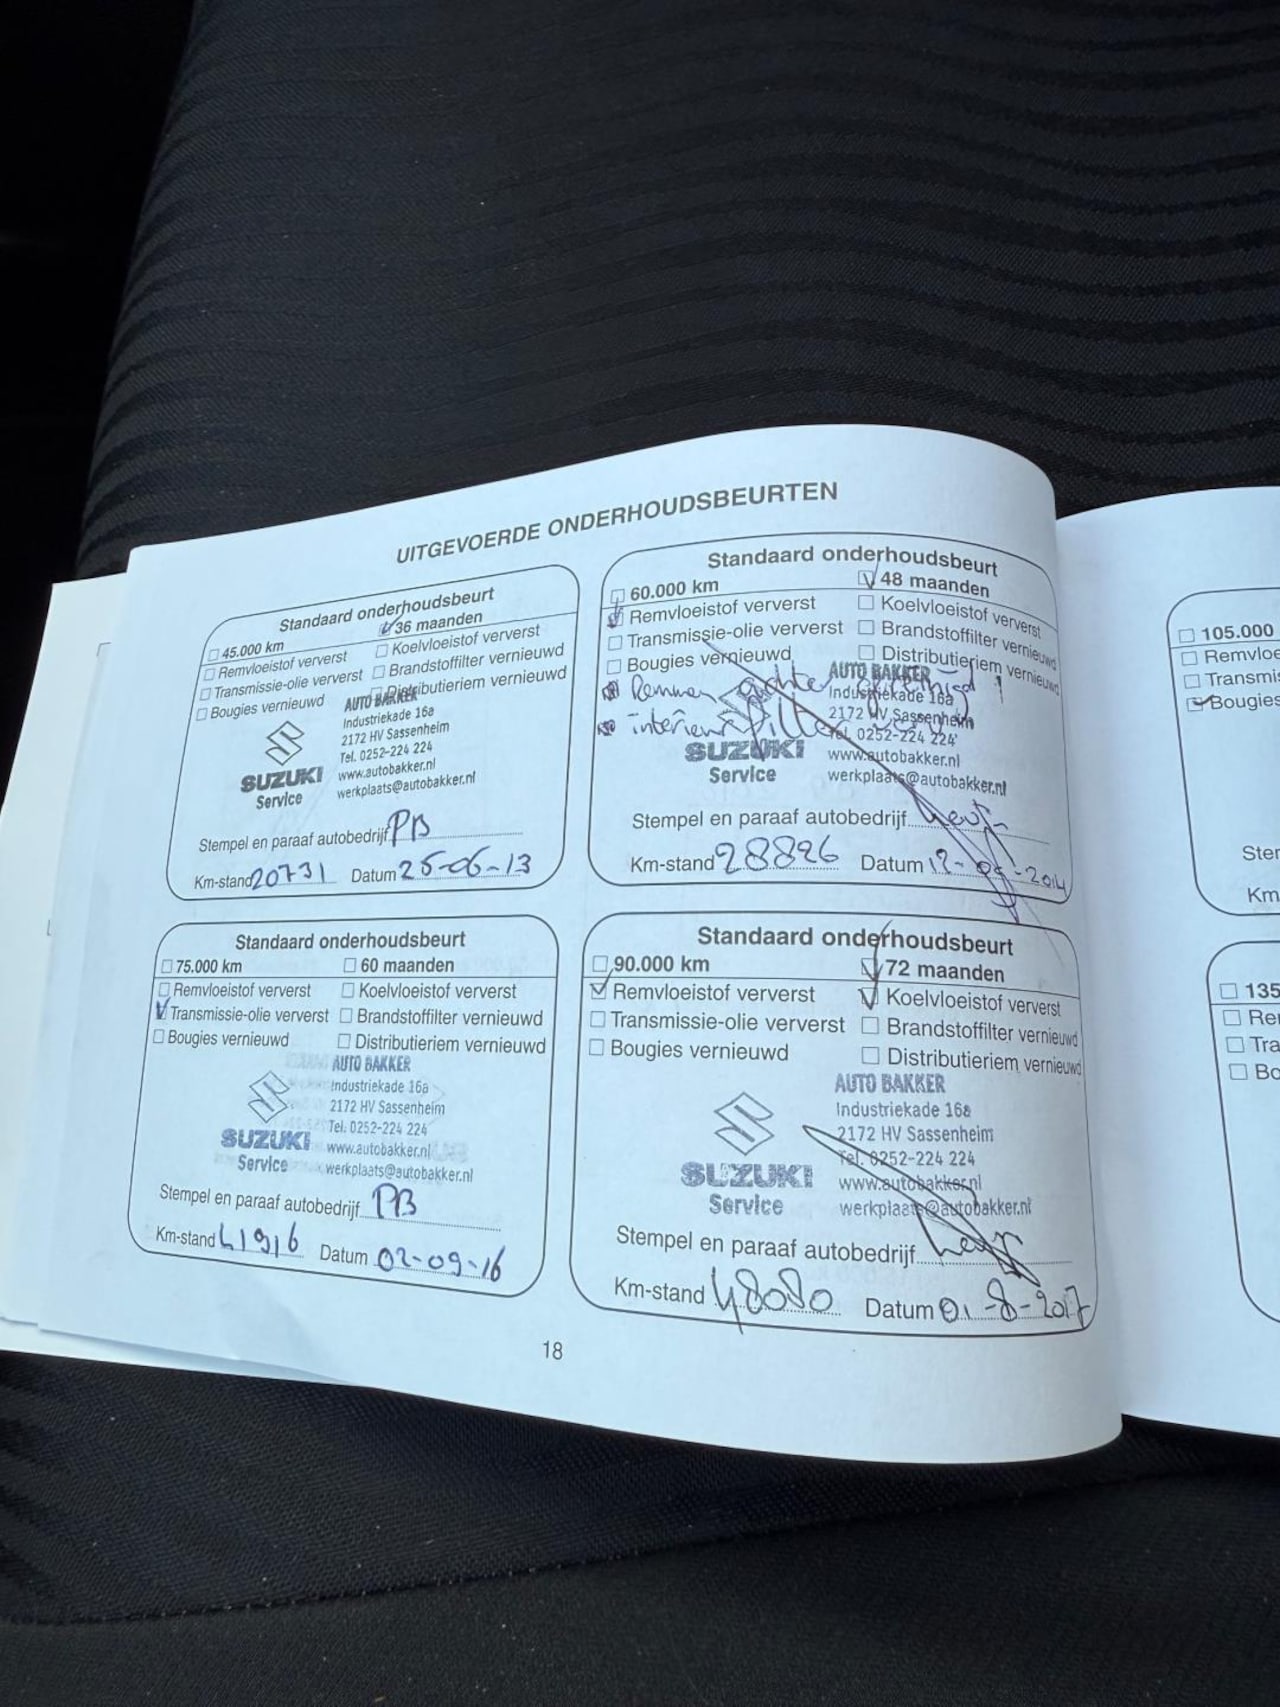 UITGEVOERDE ONDERHOUDSBEURTEN
Standaard onderhoudsbeurt
45.000 km 36 maanden
Remvloeistof ververst Koelvloeistof ververst
Transmissie-olie ververst Brandstoffilter vernieuwd
Bougies vernieuwd Distributieriem vernieuwd
AUTO BAKKER
Industriekade 16a
2172 HV Sassenheim
Tel. 0252-224 224
www.autobakker.nl
werkplaats@autobakker.nl
SUZUKI
Service
Stempel en paraaf autobedrijf PB
Km-stand 20731 Datum 25-06-13
Standaard onderhoudsbeurt
60.000 km 48 maanden
Remvloeistof ververst Koelvloeistof ververst
Transmissie-olie ververst Brandstoffilter vernieuwd
Bougies vernieuwd Distributieriem vernieuwd
Remmen achter gereinigd
interieurfilter
AUTO BAKKER
Industriekade 16a
2172 HV Sassenheim
Tel. 0252-224 224
www.autobakker.nl
werkplaats@autobakker.nl
SUZUKI
Service
Stempel en paraaf autobedrijf
Km-stand 28826 Datum 12- -2014
Standaard onderhoudsbeurt
75.000 km 60 maanden
Remvloeistof ververst Koelvloeistof ververst
Transmissie-olie ververst Brandstoffilter vernieuwd
Bougies vernieuwd Distributieriem vernieuwd
AUTO BAKKER
Industriekade 16a
2172 HV Sassenheim
Tel. 0252-224 224
www.autobakker.nl
werkplaats@autobakker.nl
SUZUKI
Service
Stempel en paraaf autobedrijf PB
Km-stand 41916 Datum 02-09-16
Standaard onderhoudsbeurt
90.000 km 72 maanden
Remvloeistof ververst Koelvloeistof ververst
Transmissie-olie ververst Brandstoffilter vernieuwd
Bougies vernieuwd Distributieriem vernieuwd
AUTO BAKKER
Industriekade 16a
2172 HV Sassenheim
Tel. 0252-224 224
www.autobakker.nl
werkplaats@autobakker.nl
SUZUKI
Service
Stempel en paraaf autobedrijf
Km-stand 48080 Datum 01-8-2017
18
105.000
Remvloe
Transmis
Bougies
Ster
Km
135
Rer
Tra
Bo